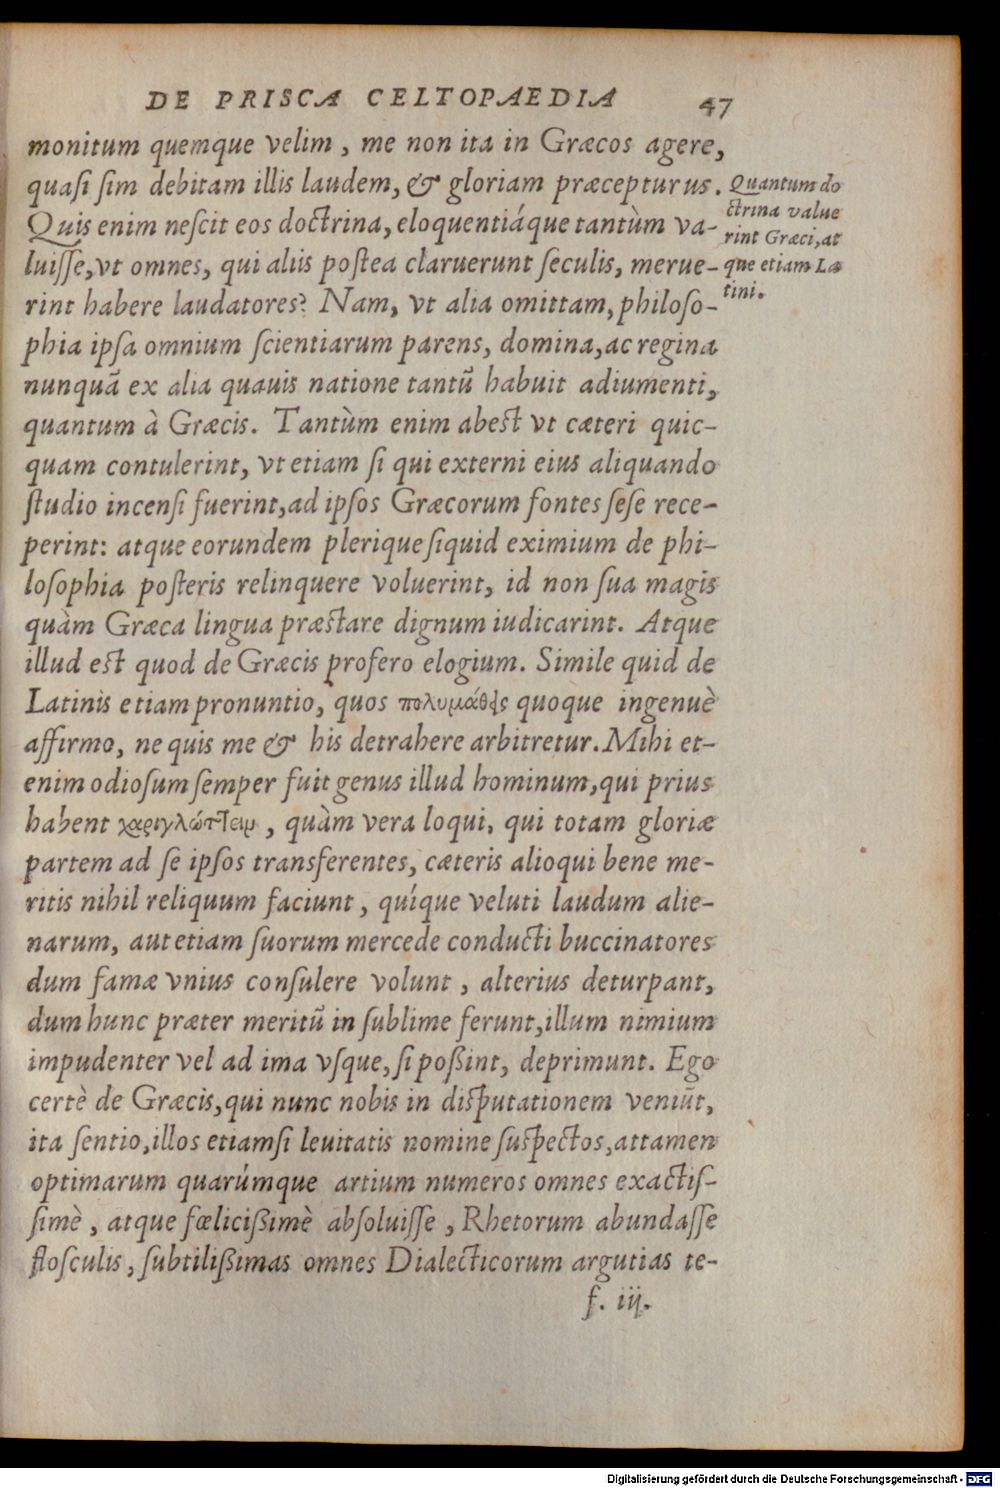 DE PRISCA CELTOPAEDIA 47
monitum quemque velim, me non ita in Græcos agere,
quaſi ſim debitam illis laudem, & gloriam præcepturus.
Quis enim neſcit eos doctrina, eloquentiáque tantùm va-
luiſſe, vt omnes, qui aliis poſtea claruerunt ſeculis, merue-
rint habere laudatores? Nam, vt alia omittam, philoſo-
phia ipſa omnium ſcientiarum parens, domina, ac regina
nunquā ex alia quauis natione tantū habuit adiumenti,
quantum à Græcis. Tantùm enim abest vt cæteri quic-
quam contulerint, vt etiam ſi qui externi eius aliquando
ſtudio incenſi fuerint, ad ipſos Græcorum fontes ſeſe rece-
perint: atque eorundem plerique ſiquid eximium de phi-
loſophia poſteris relinquere voluerint, id non ſua magis
quàm Græca lingua præstare dignum iudicarint. Atque
illud est quod de Græcis profero elogium. Simile quid de
Latinis etiam pronuntio, quos πολυμάθεις quoque ingenuè
affirmo, ne quis me & his detrahere arbitretur. Mihi et-
enim odioſum ſemper fuit genus illud hominum, qui prius
habent χαριγλώττειν, quàm vera loqui, qui totam gloriæ
partem ad ſe ipſos transferentes, cæteris alioqui bene me-
ritis nihil reliquum faciunt, quíque veluti laudum alie-
narum, aut etiam ſuorum mercede conducti buccinatores
dum famæ vnius conſulere volunt, alterius deturpant,
dum hunc præter meritū in ſublime ferunt, illum nimium
impudenter vel ad ima vſque, ſi poßint, deprimunt. Ego
certè de Græcis, qui nunc nobis in diſputationem veniūt,
ita ſentio, illos etiamſi leuitatis nomine ſuſpectos, attamen
optimarum quarúmque artium numeros omnes exactiſ-
ſimè, atque fœlicißimè abſoluiſſe, Rhetorum abundaſſe
floſculis, ſubtilißimas omnes Dialecticorum argutias te-
f. iij.
Quantum do
ctrina value
rint Græci, at
que etiam La
tini.
Digitalisierung gefördert durch die Deutsche Forschungsgemeinschaft - DFG